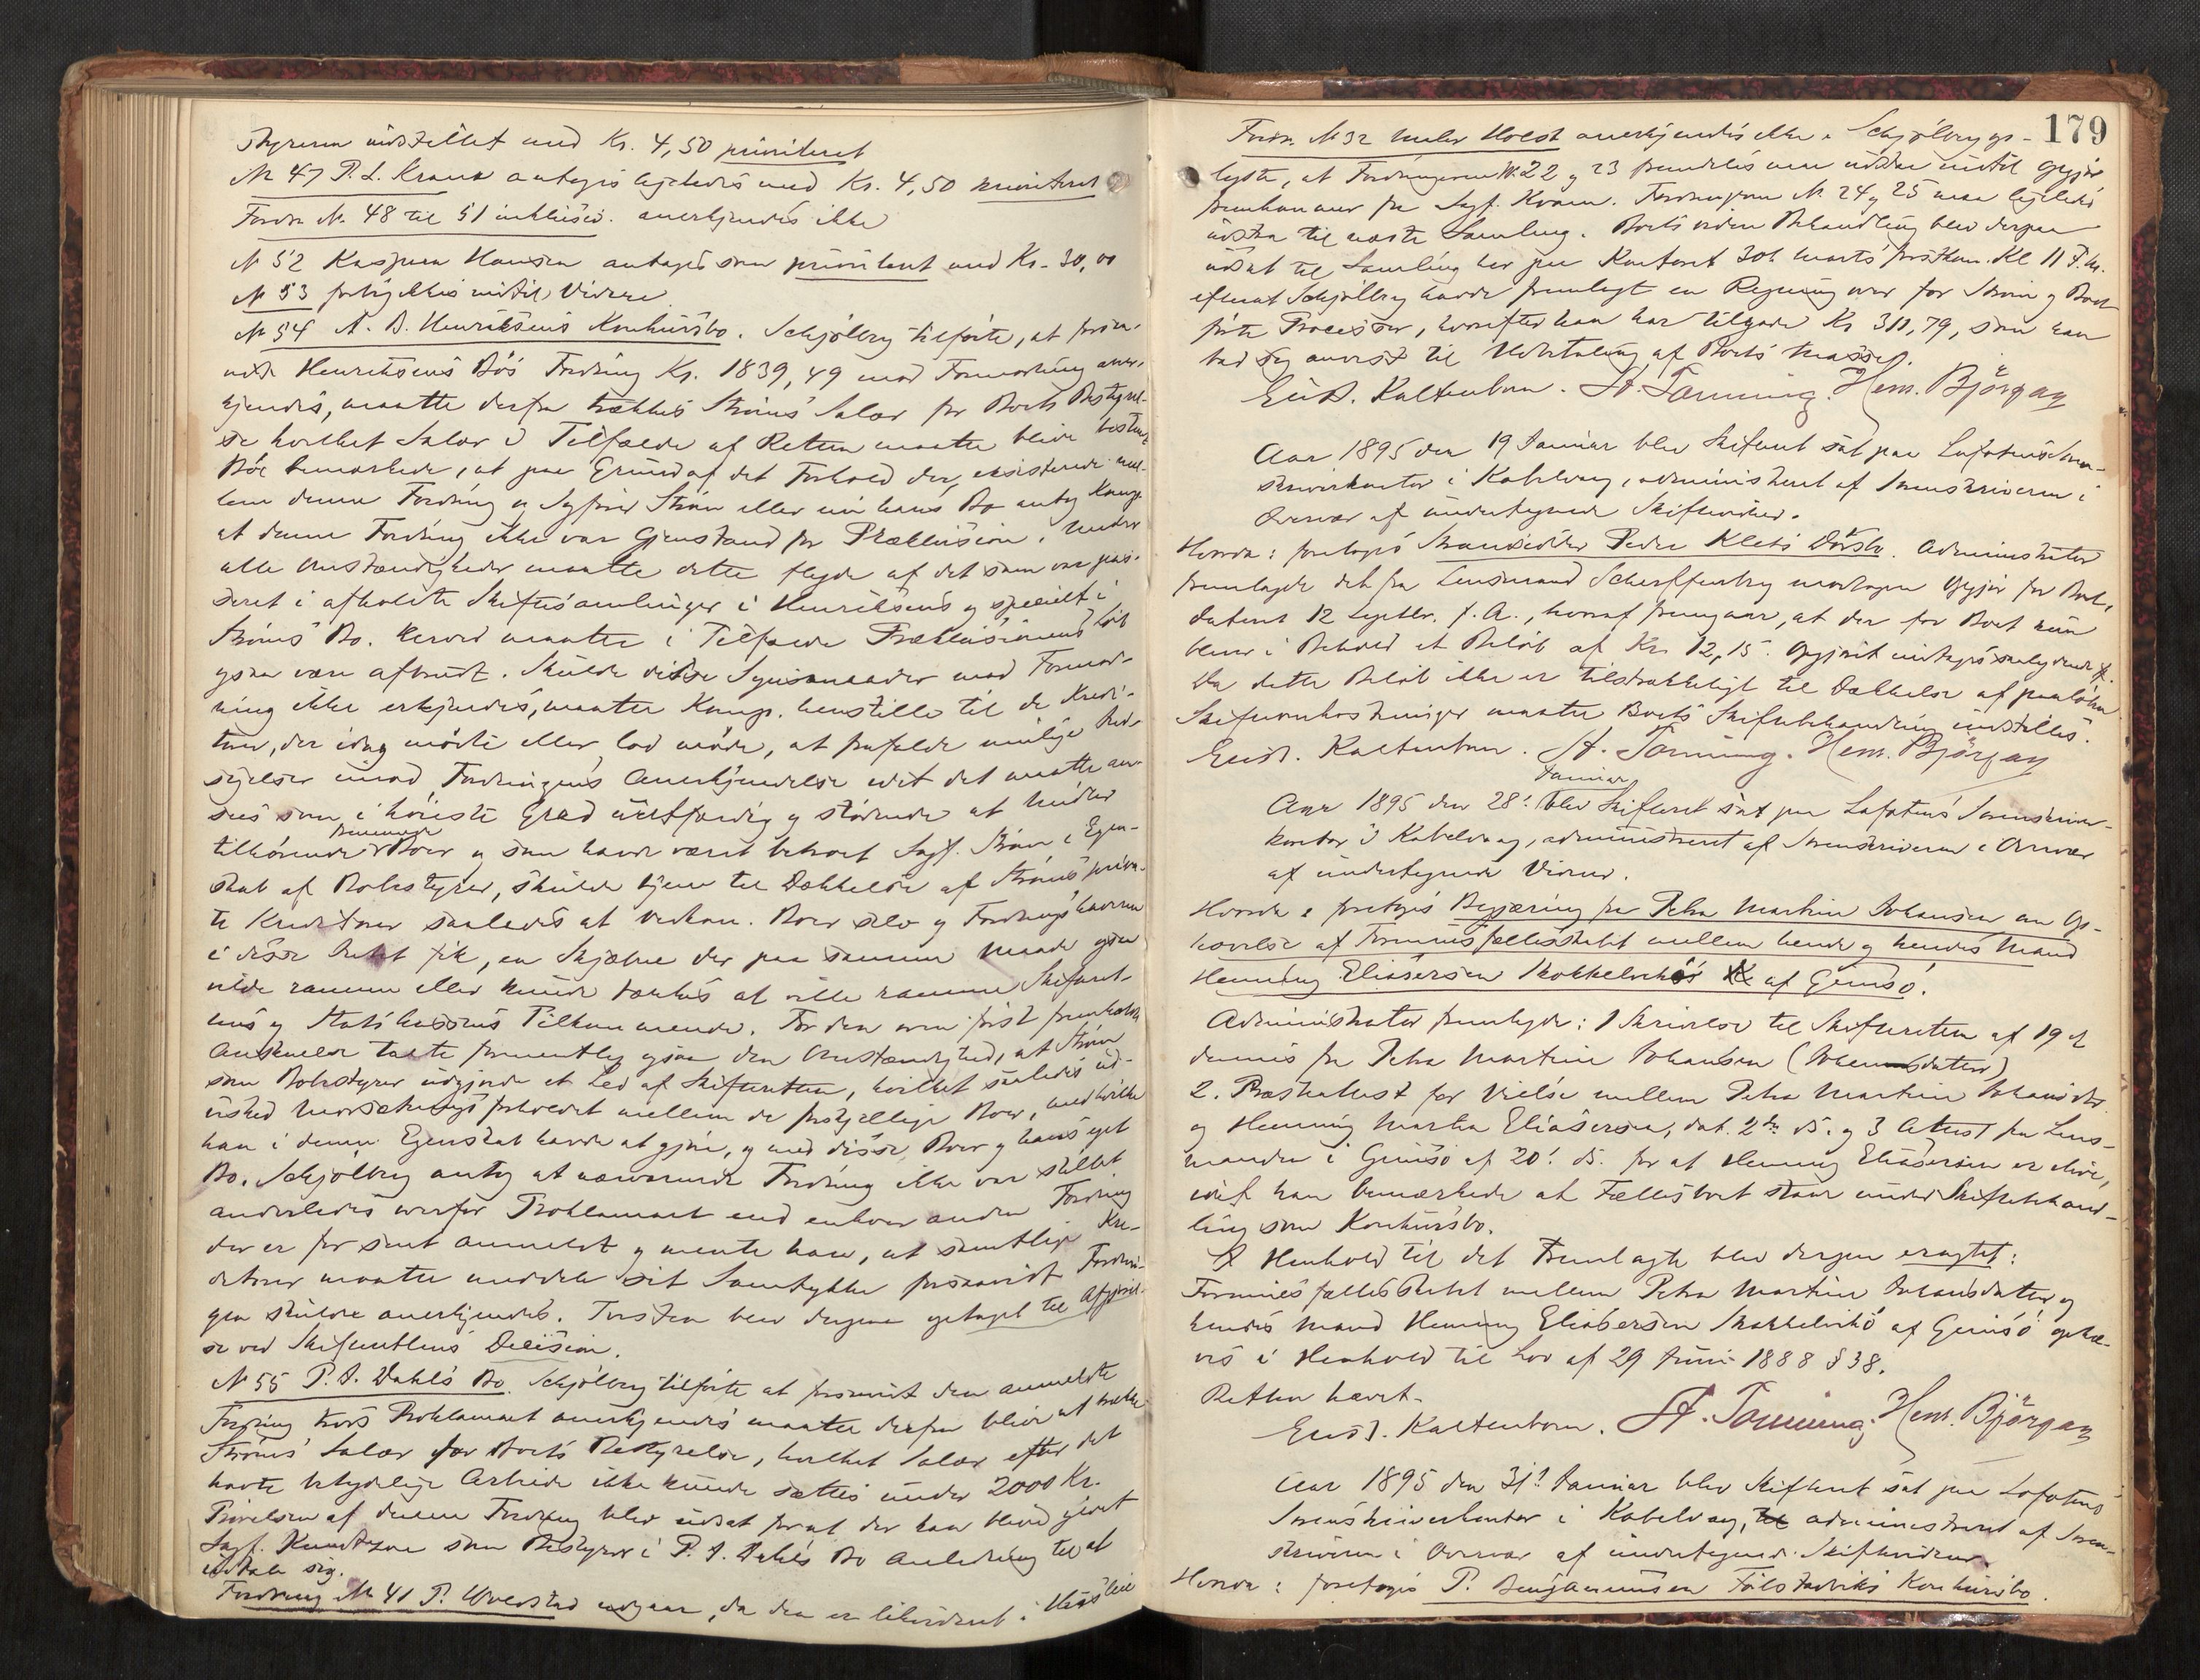 Styreren indstillet med Kr. 4,50 prioriteret
N 47 P. L. Krane antages ligeledes med Kr. 4,50 prioriteret
Fordr. N. 48 til 51 inklusiv. anerkjendes ikke
N 52 Kaspara Hansen antages som prioritert med Kr. 30,00
N 53 indtil Videre
N 54 A. B. Henriksens Konkursbo. Schjölberg tilförte, at forsaa-
vidt Henriksens Bos Fordring Kr. 1839,49 mod Formodning aner-
kjendes, maatte derfra trækkes Ströms Salær for Boets Bestyrel-
se hvilket Salær i Tilfælde af Retten maatte blive bestemt
bemærkede, at paa Grund af det Forhold der existerede mel-
lem denne Fordring og Sagförer Ström eller nu hans Bo antog
at denne Fordring ikke var Gjenstand for Præklusion. Under
alle Omstændigheder maatte dette flyde af det som var pas-
seret i afholdte Skiftesamlinger i Henriksens og specielt i
Ströms Bo. Herved maatte i Tilfælde Præklusionens Löb
ogsaa være afbrudt. Skulde disse Synsmaader mod Formod-
ning ikke erkjendes, maatte henstille til de Kredi-
torer, der idag mödte eller lod möde, at frafalde mulige Ind-
sigelser imod Fordringens Anerkjendelse idet det maatte an-
sees som i höieste Grad uretfærdig og stödende at Midler
tilhörende Boer og som havde været betroet Sagf. Ström i Egen-
skab af Bobestyrer, skulde tjene til Dækkelse af Ströms priva-
te Kreditorer saaledes at vedkom. Boer selv og Fordringshaverne
i disse Intet fik, en Skjæbne der paa samme Maade ogsaa
vilde ramme eller kunde tænkes at ville ramme Skifteret-
tens og Statskassens Tilkommende. For den oven först fremholdte
Anskuelse talte formentlig ogsaa den Omstændighed, at Ström
som Bobestyrer udgjorde et Led af Skifteretten, hvilket saaledes
forholdet mellem de forskjellige Boer, med hvilke
han i denne Egenskab havde at gjöre, og med disse Boer og hans eget
Bo. Schjölberg antog at nærværende Fordring ikke var stillet
anderledes overfor Proklamaet end enhver anden Fordring
der er for sent anmeldt og mente han, at samtlige Kre-
ditorer maatte meddele sit Samtykke forsaavidt Fordrin-
gen skulde anerkjendes. Tvisten blev derpaa optaget til Afgjörel-
se ved Skifterettens Decision.
N 55 P. A. Dahls Bo. Schjölberg tilförte at forsaavidt den anmeldte
Fordring trods Proklamaet anerkjendes maatte derfra blive at trække
Ströms Salær for Boets Bestyrelse, hvilket Salær efter det
havte betydelige Arbeide ikke kunde sættes under 2000 Kr.
Prövelsen af denne Fordring blev udsat for at der kan blive givet
Sagf. Knudtzon som Bestyrer i P. A. Dahls Bo Anledning til at
udtale sig.
Fordring N 41 P. udgaar, da den er likvideret i
179
Fordr. N 32 Maler Holst anerkjendes ikke. Schjölberg op-
lyste, at Fordringerne N. 22 og 23 fremdeles maa udstaa indtil Opgjör
fremkommer fra Sagf. Kvam. Fordringerne N. 24 og 25 maa ligeledes
udstaa til næste Samling. Boets videre Behandling blev derpaa
udsat til Samling her paa Kontoret 30te Marts förstkom. Kl 11 F.M.
efterat Schjölberg havde fremlagt en Regning over for Ström og Boet
förte Processer, hvorefter han har tilgode Kr 311,79, som han
bad sig anvist til Udbetaling af Boets Masse.
Eind. Kaltenborn. St. Tönning. Hem. Björgan
Aar 1895 den 19 Januar blev Skifteret sat paa Lofotens Soren-
skriverkontor i Kabelvaag, administreret af Sorenskriveren i
Overvær af undertegnede Skiftevidner.
Hvorda: foretoges Strandsidder Peder Klets Dödsbo. Administrator
fremlagde det fra Lensmand Scharffenberg modtagne Opgjör for Boet,
dateret 12 Septbr. f. A., hvoraf fremgaar, at der for Boet kun
blev i Behold et Belöb af Kr. 12,15. Opgjöret
Da dette Belöb ikke er tilstrækkeligt til Dækkelse af paalöbne
Skifteomkostninger maatte Boets Skiftebehandling indstilles.
Eind. Kaltenborn. St. Tönning. Hem. Björgan
Januar
Aar 1895 den 28de blev Skifteret sat paa Lofotens Sorenskriver-
kontor i Kabelvaag, administreret af Sorenskriveren i Overvær
af undertegnede Vidner.
Hvorda: foretoges Begjæring fra Petra Martine Johansen om Op-
hævelse af Formuesfællesskabet mellem hende og hendes Mand
Henning Eliasersen af Gimsö.
Administrator fremlagde: 1 Skrivelse til Skifteretten af 19 ds
dennes fra Petra Martine Johansen (Johansdatter)
2. Præsteattest for Vielse mellem Petra Martine Johansdtr.
og Henning Martin Eliasersen, dat. 2den ds. og 3 Attest fra Lens-
manden i Gimsö af 20de ds. for at Henning Eliasersen er
idet han bemærkede at Fællesboet staar under Skiftebehand-
ling som Konkursbo.
I Henhold til det Fremlagte blev derpaa eragtet:
Formuesfællesskabet mellem Petra Martine Johansdatter og
hendes Mand Henning Eliasersen af Gimsö ophæ-
ves i Henhold til Lov af 29 Juni 1888 § 38.
Retten hævet.
Eind. Kaltenborn. St. Tönning. Hem. Björgan
Aar 1895 den 31te Januar blev Skifteret sat paa Lofotens
Sorenskriverkontor i Kabelvaag, administreret af Soren-
skriveren i Overvær af undertegnede Skiftevidner.
Hvorda: foretoges P. Benjaminsen Konkursbo.